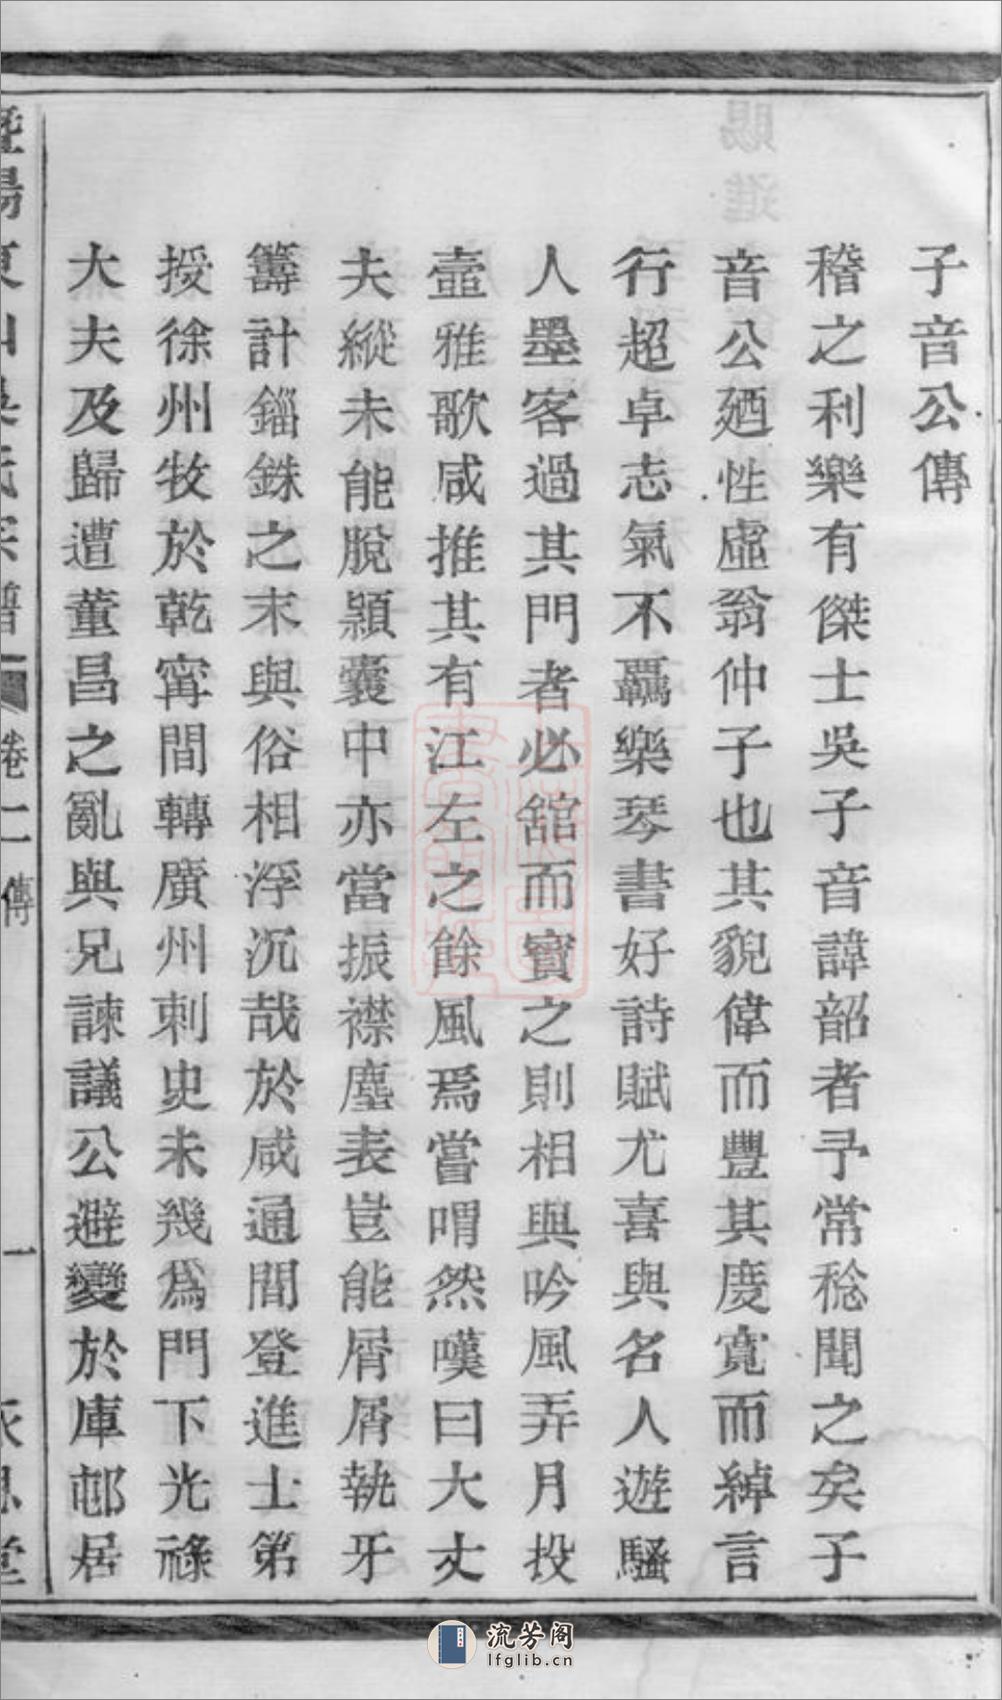 子音公傳
稽之利樂有傑士吳子音諱韶者予常稔聞之矣子
音公廼性虛翁仲子也其貌偉而豐其度寬而綽言
行超卓志氣不羈樂琴書好詩賦尤喜與名人遊騷
人墨客過其門者必舘而賓之則相與吟風弄月投
壺雅歌咸推其有江左之餘風焉嘗喟然嘆曰大丈
夫縱未能脫穎囊中亦當振襟塵表豈能屑屑執牙
籌計錙銖之末與俗相浮沉哉於咸通間登進士第
授徐州牧於乾甯間轉廣州刺史未幾爲門下光祿
大夫及歸遭董昌之亂與兄諫議公避變於庫邨居
暨陽東山吳氏宗譜 卷二 傳 一
流芳阁
lfglib.cn